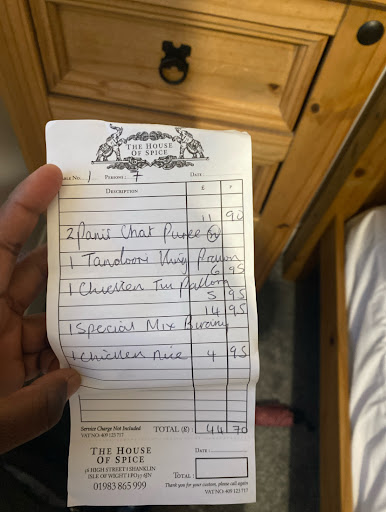 THE HOUSE
OF SPICE
TABLE No. 1 PERSONS: 7 DATE
DESCRIPTION £ P
11 90
2 Panir Chat Puree
1 Tandoori King Prawn
6 95
1 Chicken Tin
5 95
14 95
1 Special Mix Biriany
1 Chicken rice 4 95
Service Charge Not Included
VAT NO: 409 123 717
TOTAL (£) 44 70
THE HOUSE
OF SPICE
DATE:
HIGH STREET SHANKLIN
ISLE OF WIGHT PO37 6JN
TOTAL:
01983 865 999
Thank you for your custom, please call again
VAT NO: 409 123 717